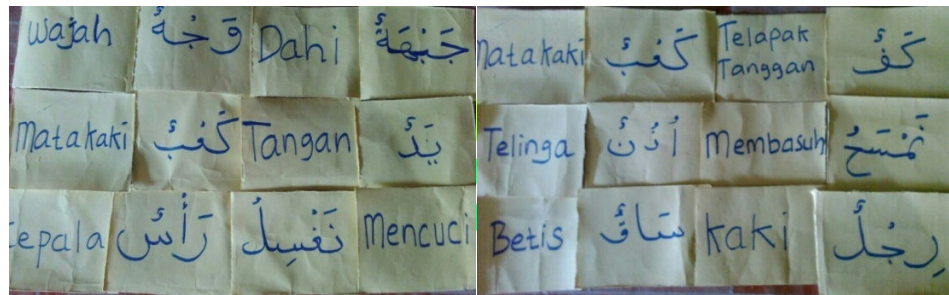 Wajah وَجْهٌ Dahi جَبْهَةٌ
Matakaki كَعْبٌ Tangan يَدٌ
epala رَأْسٌ نَغْسِلُ Mencuci
Matakaki كَعْبٌ Telapak Tanggan كَفٌ
Telinga أُذُنٌ Membasuh نَمْسَحُ
Betis سَاقٌ kaki رِجْلٌ